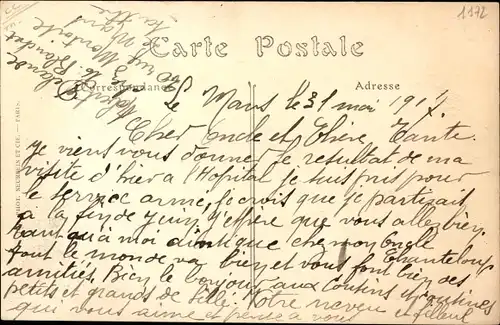 1172
Carte Postale
Correspondance
Adresse
Le Mans le 31 mai 191
Cher oncle et Chère Tante
je viens vous donner le resultat de ma
visite d'hier a l'Hopital je suis pris pour
le service armé je crois que je partirait
a la fin de juin j'espère que vous allez bien
quant a moi ainsi que chez mon Ongle
tout le monde va bien et vous font bien des
amitiés. Bien le bonjour aux Cousins et Cousines
petits et grands de Sillé. Votre neveu et filleul
qui vous aime et pense a vous
Chanteloup
PHOT. NEURDEIN ET CIE. — PARIS.